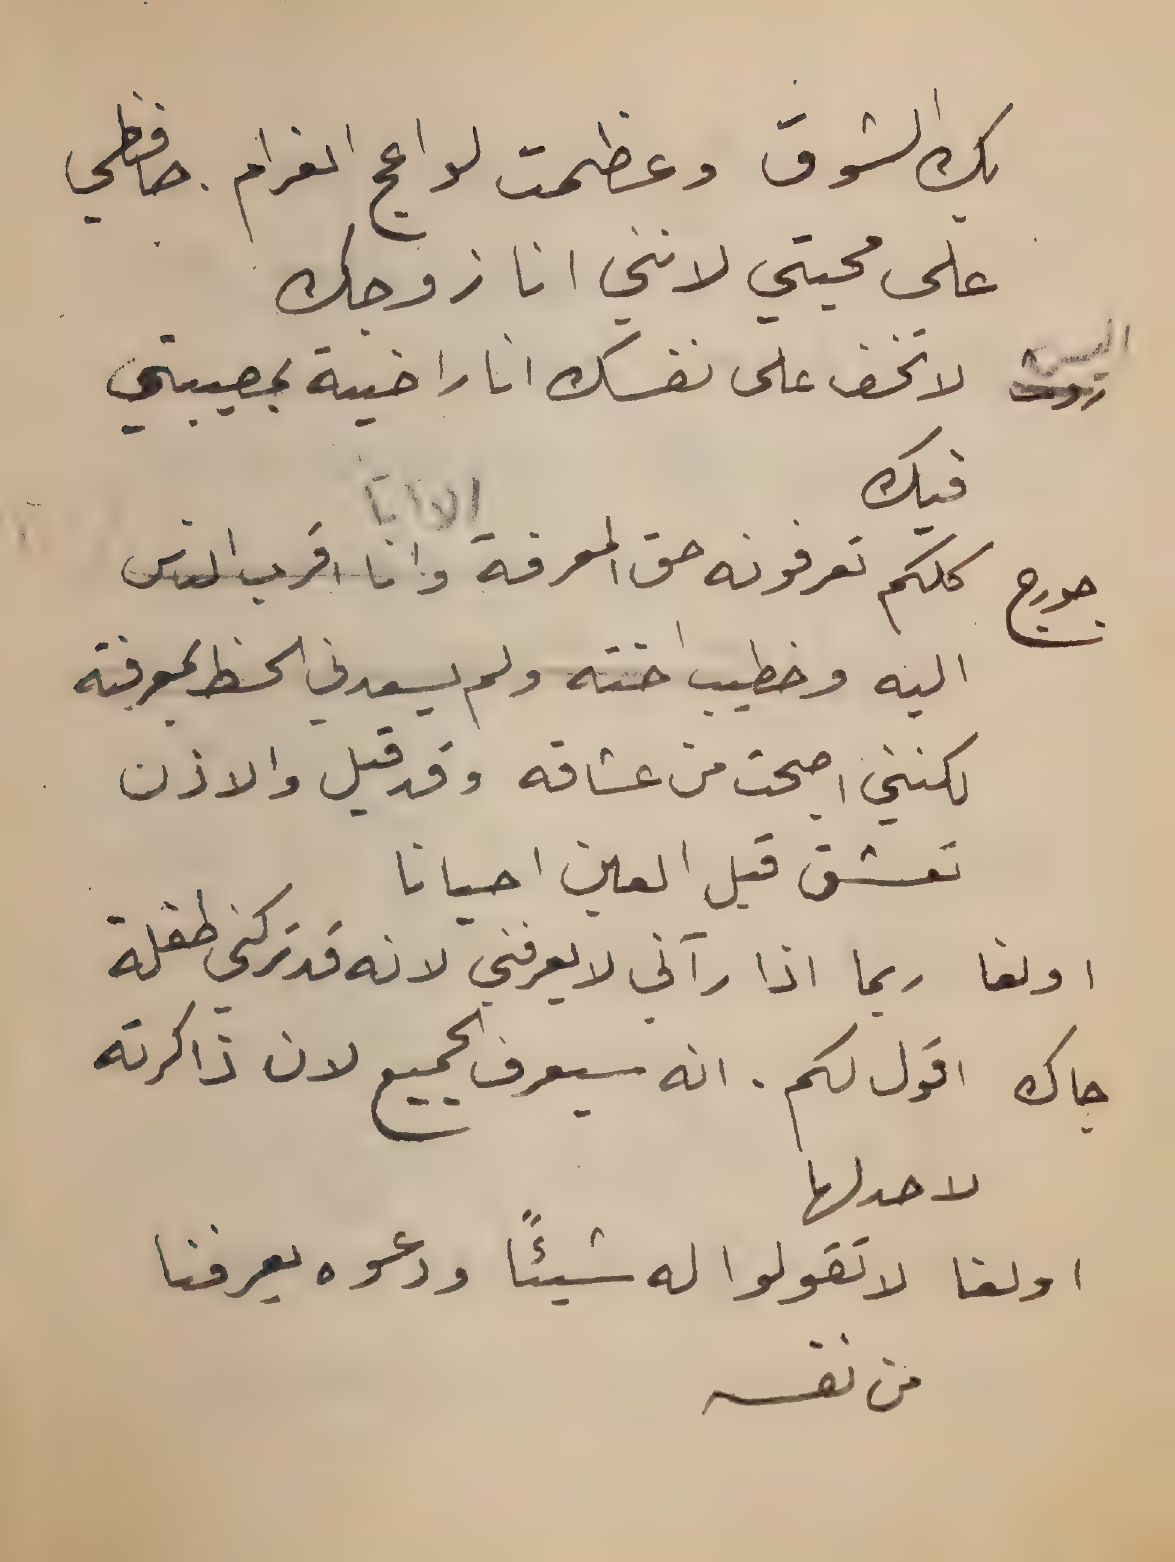 بك الشوق وعظمت لواعج الغرام . حافظي
على محبتي لانني انا زوجك
اليس لا تخف على نفسك انا راضية بمصيبتي
فيك
الا انا
جورج كلكم تعرفونه حق المعرفة وانا اقرب الناس
اليه وخطيب اخته ولم يسعدني الحظ بمعرفته
لكنني اصبحت من عشاقه وقد قيل والاذن
تعشق قبل العين احيانا
اولغا ربما اذا رآني لا يعرفني لانه قد تركني طفلة
جاك اقول لكم . انه سيعرف الجميع لان ذاكرته
لا حد لها
اولغا لا تقولوا له شيئًا ودعوه يعرفنا
من نفسه